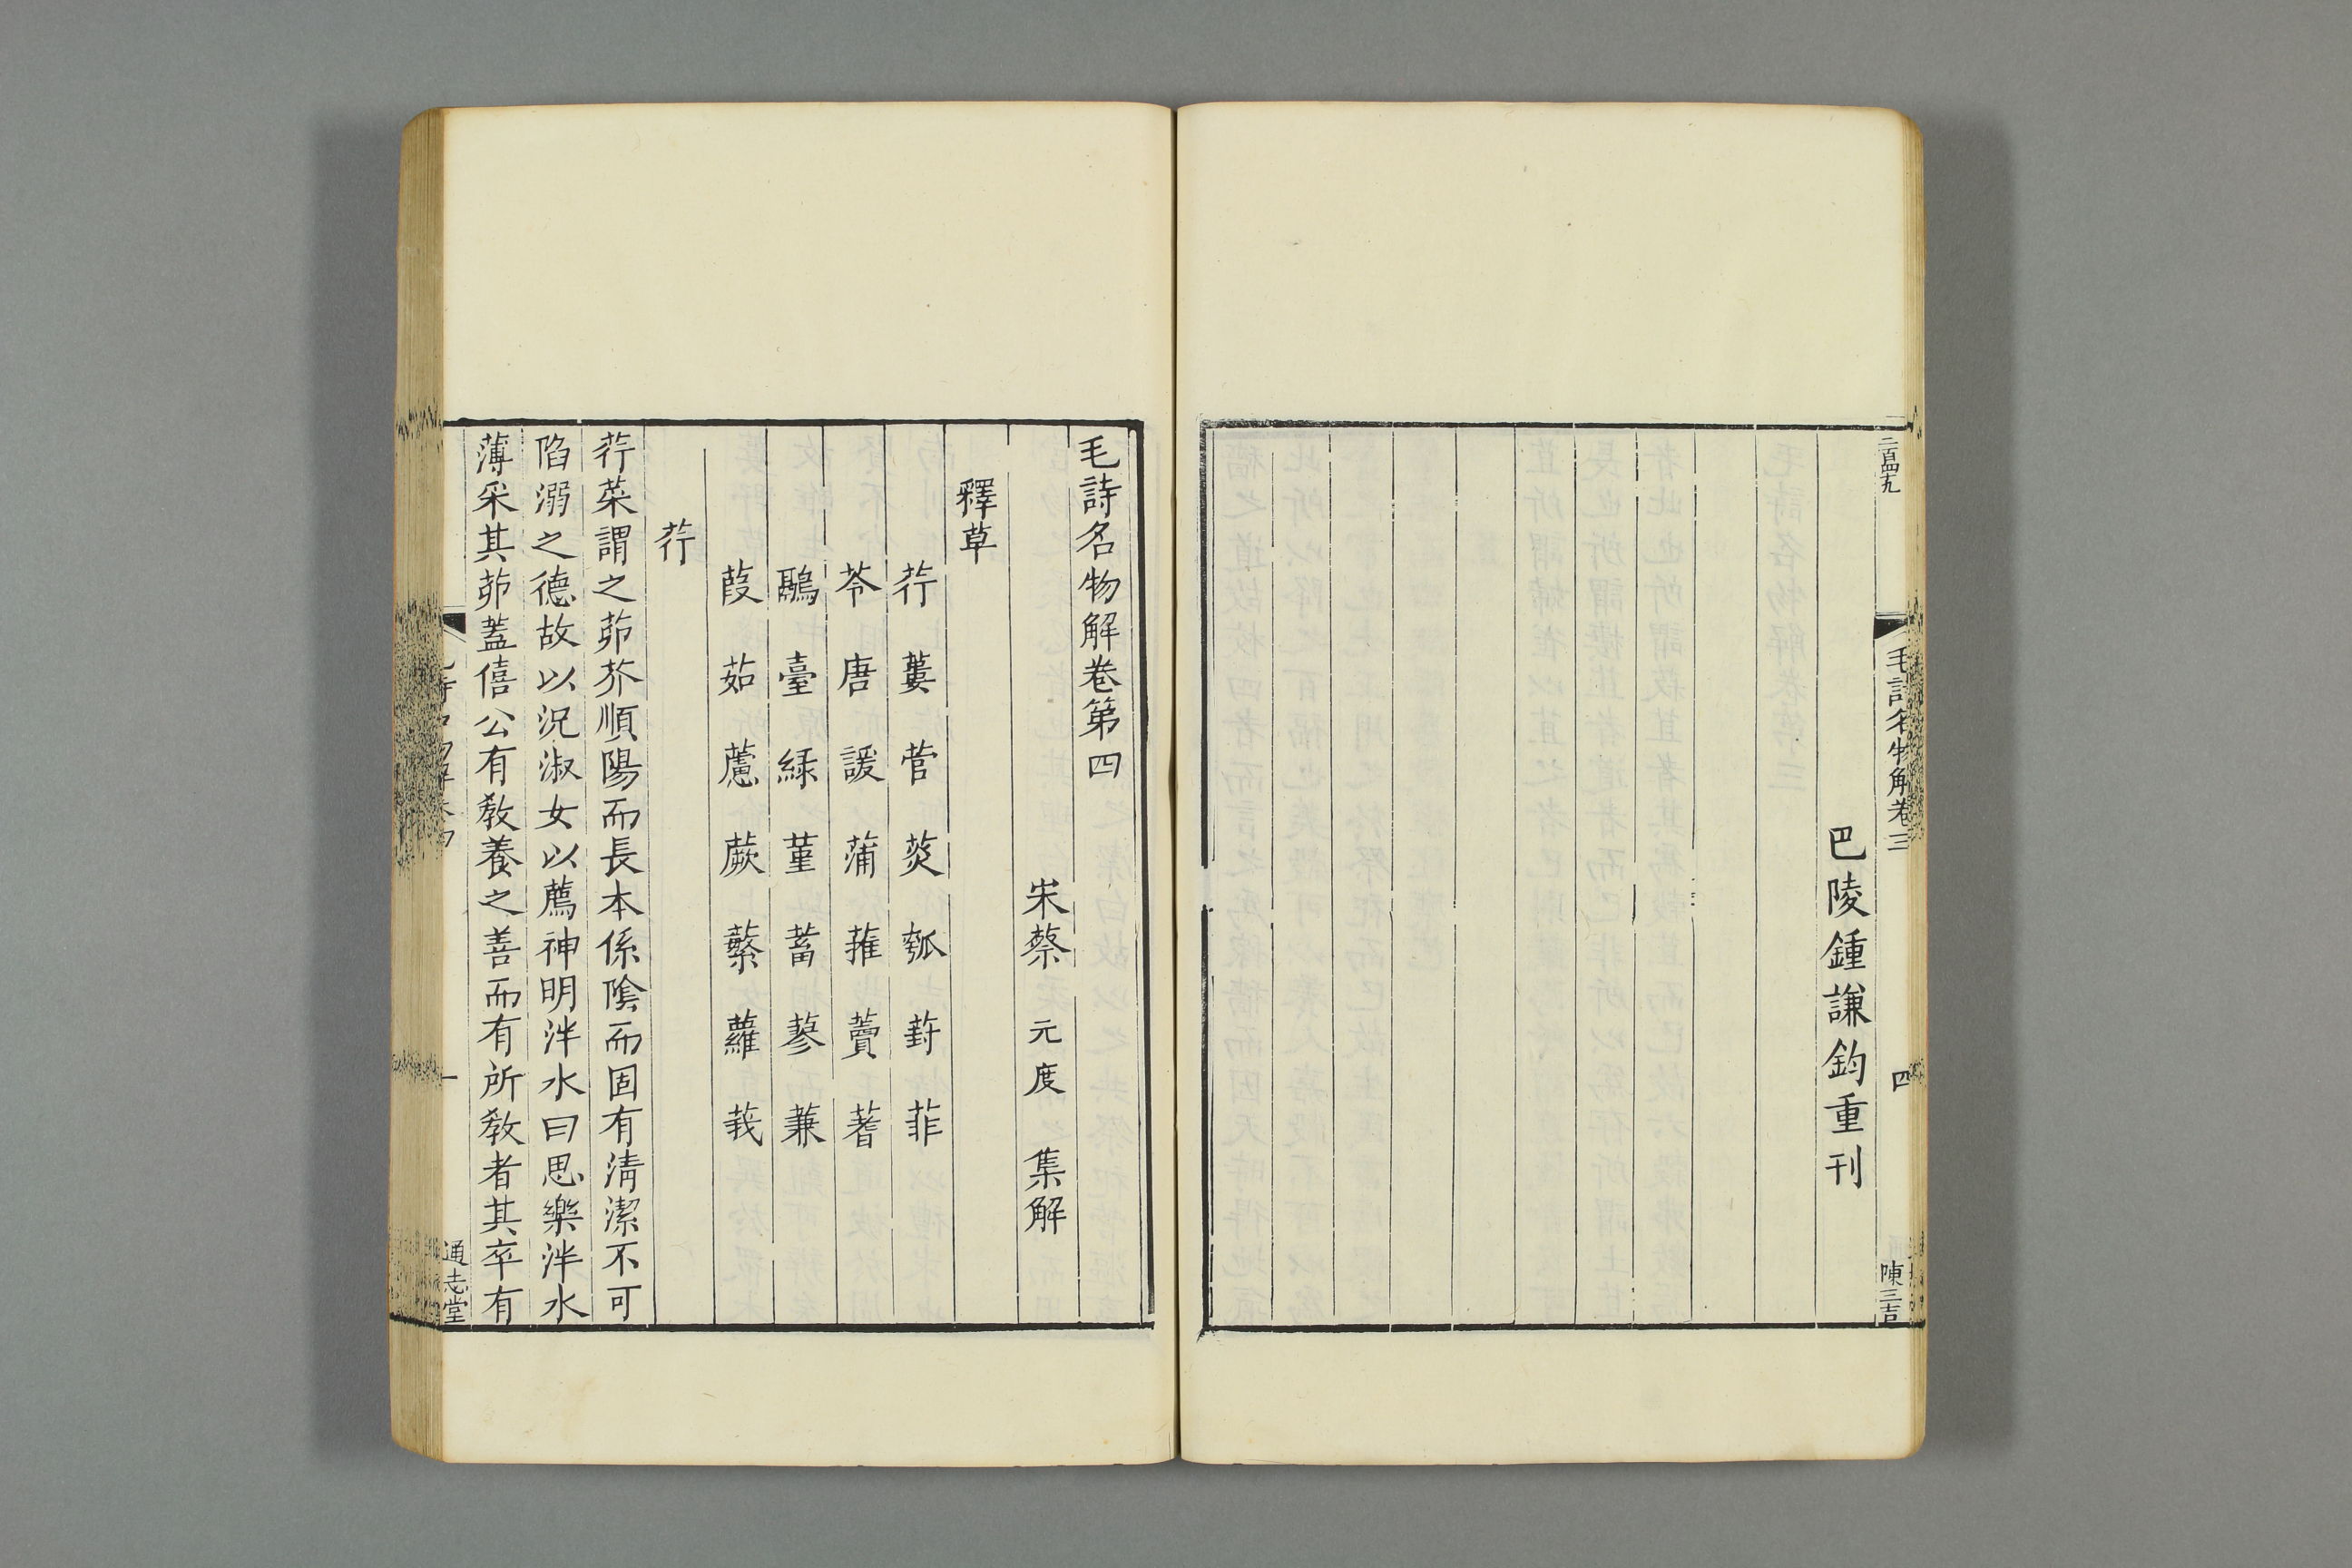 巴陵鍾謙鈞重刊
毛詩名物解卷三
四
陳三吉
毛詩名物解卷第四
宋蔡元度集解
釋草
荇 蔞 菅 菼 瓠 葑 菲
苓 唐 諼 蒲 蓷 藚 蓍
鷊 臺 綠 堇 蓄 蓼 蒹
葭 茹藘 蕨 蘩 蘿 莪
荇
荇菜謂之茆荞順陽而長本係陰而固有清潔不可
陷溺之德故以況淑女以薦神明泮水曰思樂泮水
薄采其茆蓋僖公有教養之善而有所教者其卒有
一
通志堂